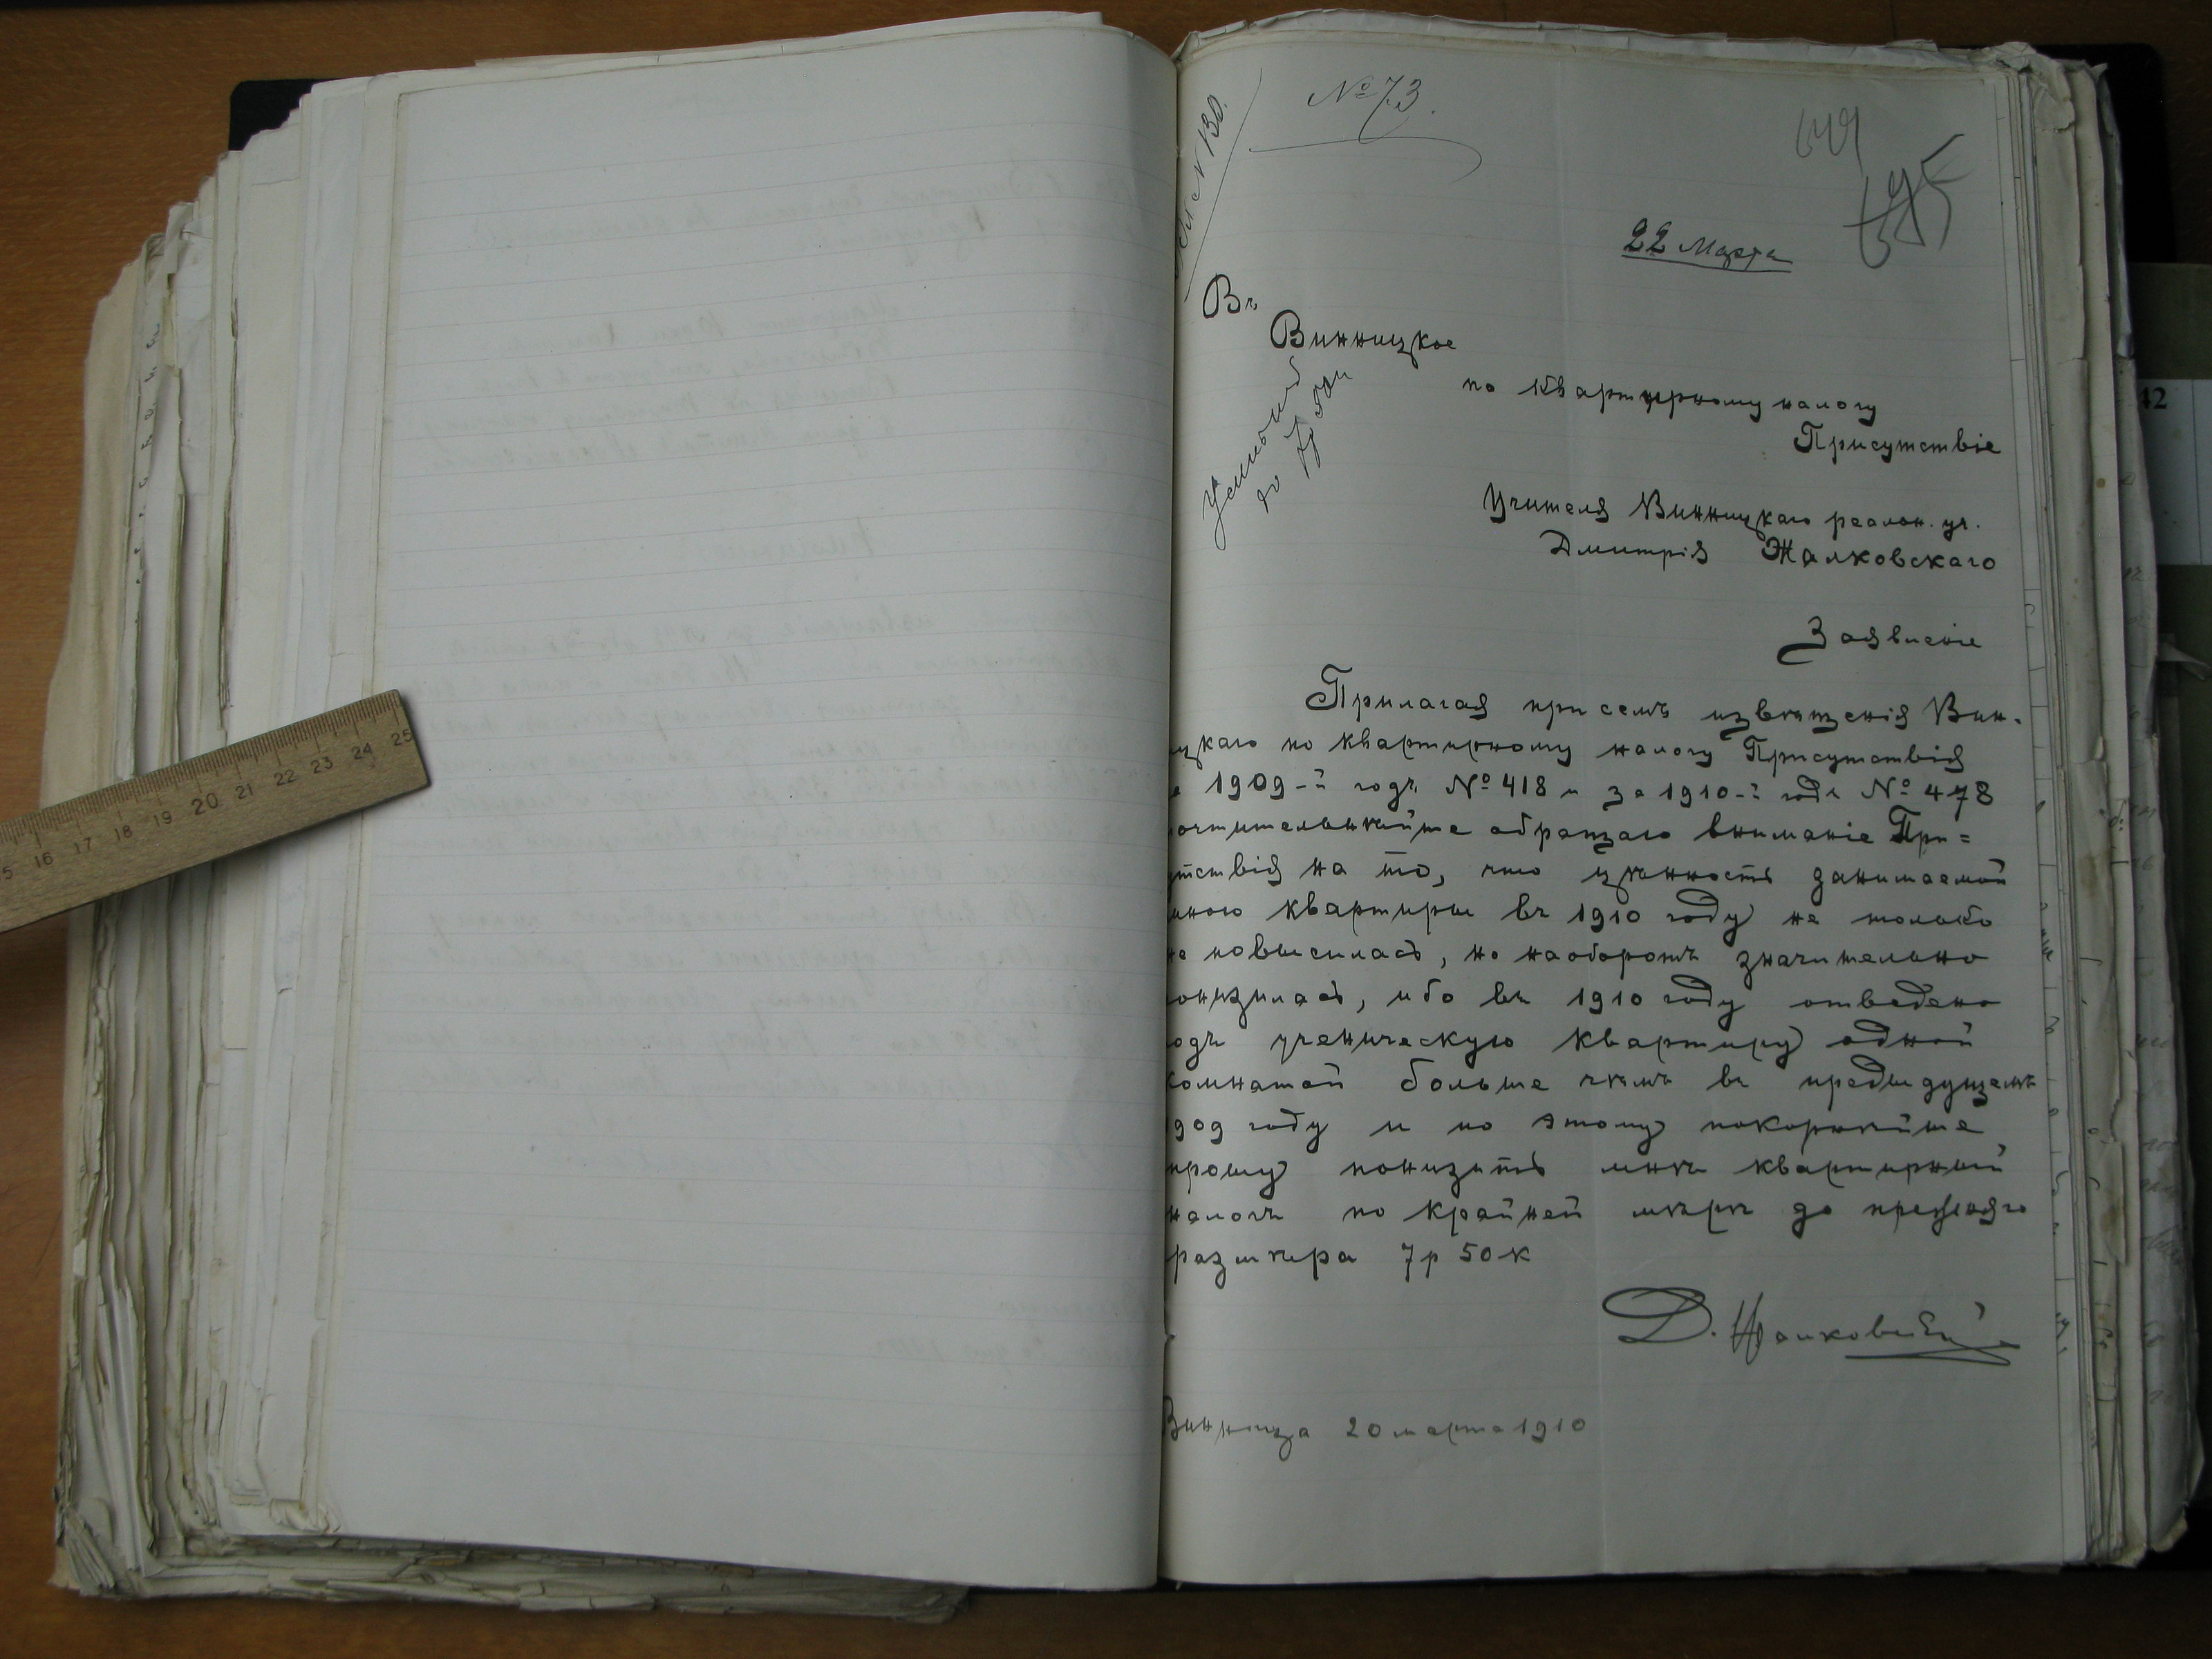 № 73.
№ 130.
22 Марта
Въ
Винницкое
по квартирному налогу
Присутствіе
Уменьшить
до 7р 50к
Учителя Винницкаго реальн. уч.
Дмитрія Жалковскаго
Заявленіе
Прилагая при семъ извѣщенія Вин-
цкаго по квартирному налогу Присутствія
1909-й годъ № 418 и за 1910-й годъ № 478
очтительнѣйше обращаю вниманіе При=
утствія на то, что цѣнность занимаемой
мною квартиры въ 1910 году не только
не повысилась, но наоборотъ значительно
онизилась, ибо въ 1910 году отведено
одъ ученическую квартиру одной
комнатой больше чѣмъ въ предыдущемъ
909 году и по этому покорнѣйше
прошу понизить мнѣ квартирный
налогъ по крайней мѣрѣ до прежняго
размѣра 7р 50к
Д. Жалковскій
Винница 20 марта 1910
15 16 17 18 19 20 21 22 23 24 25